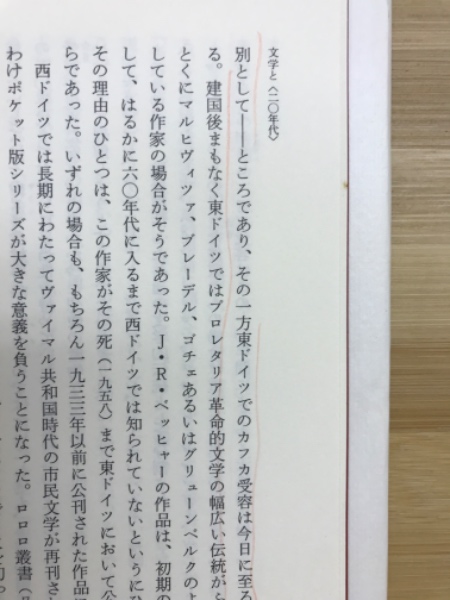 文学と〈二〇年代〉
別として――ところであり、その一方東ドイツでのカフカ受容は今日に至る
る。建国後まもなく東ドイツではプロレタリア革命的文学の幅広い伝統が
とくにマルヒヴィツァ、ブレーデル、ゴチェあるいはグリューンベルクのよ
している作家の場合がそうであった。J・R・ベッヒャーの作品は、初期の
して、はるかに六〇年代に入るまで西ドイツでは知られていないというにひ
その理由のひとつは、この作家がその死（一九五八）まで東ドイツにおいて公
らであった。いずれの場合も、もちろん一九三三年以前に公刊された作品
西ドイツでは長期にわたってヴァイマル共和国時代の市民文学が再刊さ
わけポケット版シリーズが大きな意義を負うことになった。ロロロ叢書